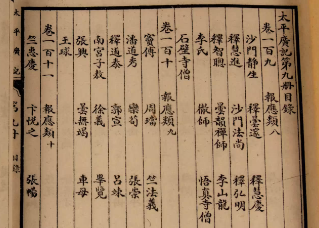 太平廣記第九冊目錄
卷一百九 報應類八
沙門靜生 釋曇邃 釋慧慶
釋慧進 沙門法尚 釋弘明
釋智聰 曇韻禪師 李山龍
李氏 徹師 悟真寺僧
石壁寺僧
卷一百十 報應類九
竇傅 周璫 竺法義
潘道秀 欒荀 張崇
釋道泰 郭宣 呂竦
南宮子敖 徐義 畢覽
張興 曇無竭 車母
王球
卷一百十一 報應類十
竺惠慶 卞悅之 張暢
太平廣記
目錄